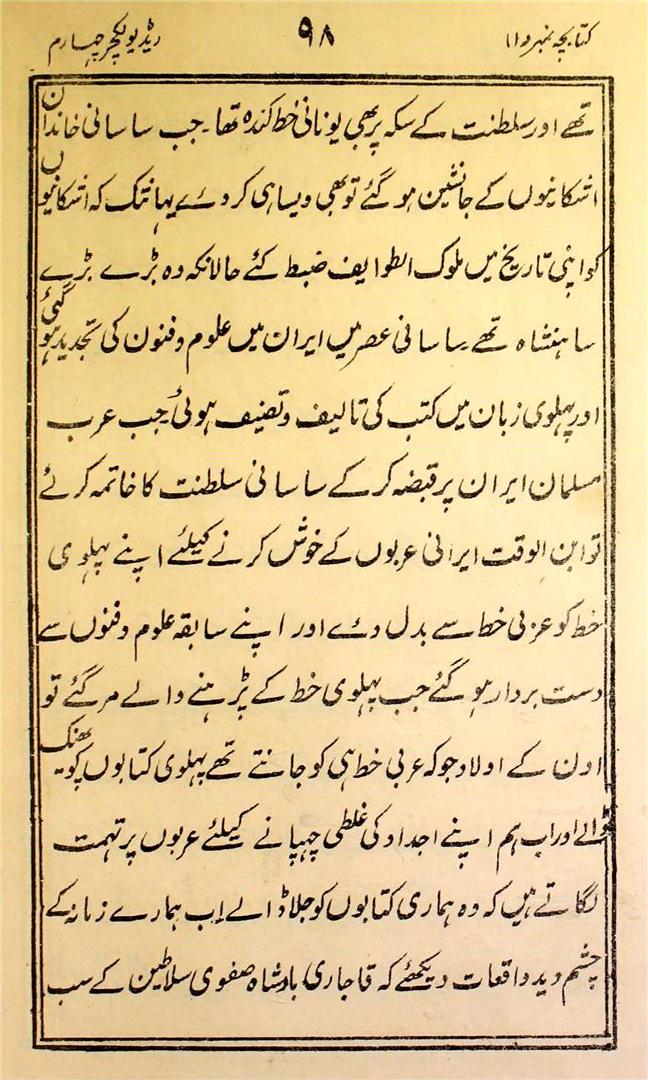 کتابچہ نمبر ۱۱۰
۹۸
ریڈیو لکچر چہارم
تھے اور سلطنت کے سکہ پر بھی یونانی خط کندہ تھا۔ جب ساسانی خاندان
اشکانیوں کے جانشین ہو گئے تو بھی ویسا ہی کردئے یہانتک کہ اشکانیوں
کو اپنی تاریخ میں ملوک الطوایف ضبط کئے حالانکہ وہ بڑے بڑے
ساہنشاہ تھے۔ ساسانی عصر میں ایران میں علوم و فنون کی تجدید ہو گئی
اور پہلوی زبان میں کتب کی تالیف و تصنیف ہوئی۔ جب عرب
مسلمان ایران پر قبضہ کر کے ساسانی سلطنت کا خاتمہ کرئے
تو ابن الوقت ایرانی عربوں کے خوش کرنے کیلئے اپنے پہلوی
خط کو عربی خط سے بدل دئے اور اپنے سابقہ علوم و فنوں سے
دست بردار ہو گئے جب پہلوی خط کے پڑہنے والے مر گئے تو
اون کے اولاد جو کہ عربی خط ہی کو جانتے تھے پہلوی کتابوں کو پھنک
ڈالے اور اب ہم اپنے اجداد کی غلطی چہپانے کیلئے عربوں پر تہمت
لگاتے ہیں کہ وہ ہماری کتابوں کو جلا ڈالے۔ اب ہمارے زمانہ کے
چشم دید واقعات دیکھئے کہ قاجاری بادشاہ صفوی سلاطین کے سب